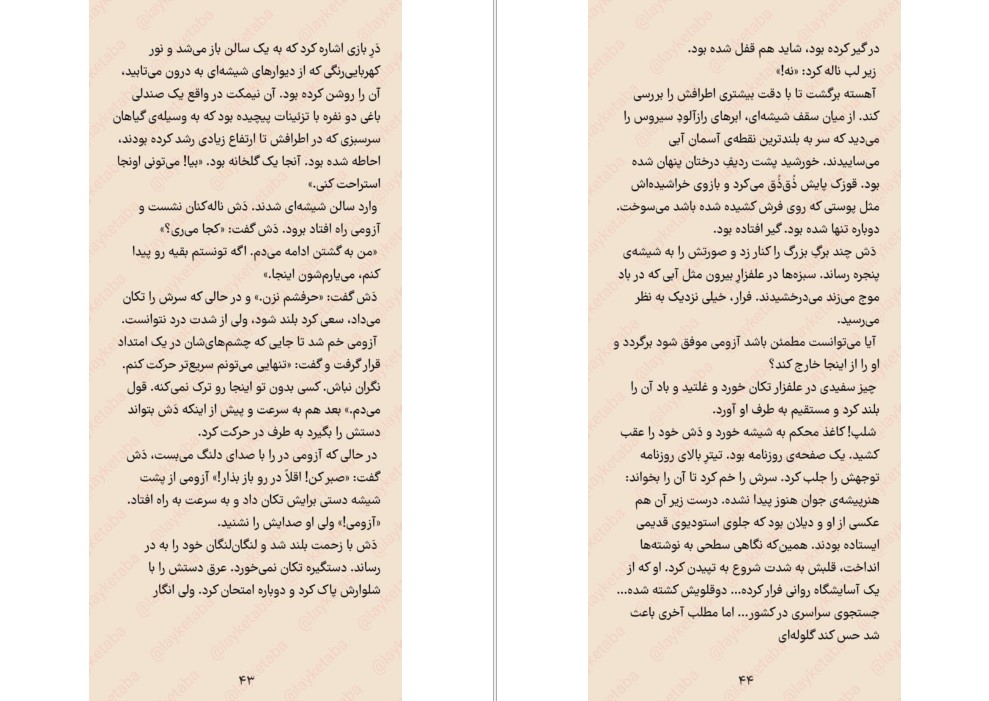 دَرِ بازی اشاره کرد که به یک سالن باز می‌شد و نور
کهربایی‌رنگی که از دیوارهای شیشه‌ای به درون می‌تابید،
آن را روشن کرده بود. آن نیمکت در واقع یک صندلی
باغی دو نفره با تزئینات پیچیده بود که به وسیله‌ی گیاهان
سرسبزی که در اطرافش تا ارتفاع زیادی رشد کرده بودند،
احاطه شده بود. آنجا یک گلخانه بود. «بیا! می‌تونی اونجا
استراحت کنی.»
وارد سالن شیشه‌ای شدند. دَش ناله‌کنان نشست و
آزومی راه افتاد برود. دَش گفت: «کجا می‌ری؟»
«من به گشتن ادامه می‌دم. اگه تونستم بقیه رو پیدا
کنم، می‌یارم‌شون اینجا.»
دَش گفت: «حرفشم نزن.» و در حالی که سرش را تکان
می‌داد، سعی کرد بلند شود، ولی از شدت درد نتوانست.
آزومی خم شد تا جایی که چشم‌های‌شان در یک امتداد
قرار گرفت و گفت: «تنهایی می‌تونم سریع‌تر حرکت کنم.
نگران نباش. کسی بدون تو اینجا رو ترک نمی‌کنه. قول
می‌دم.» بعد هم به سرعت و پیش از اینکه دَش بتواند
دستش را بگیرد به طرف در حرکت کرد.
در حالی که آزومی در را با صدای دلنگ می‌بست، دَش
گفت: «صبر کن! اقلاً در رو باز بذار!» آزومی از پشت
شیشه دستی برایش تکان داد و به سرعت به راه افتاد.
«آزومی!» ولی او صدایش را نشنید.
دَش با زحمت بلند شد و لنگان‌لنگان خود را به در
رساند. دستگیره تکان نمی‌خورد. عرق دستش را با
شلوارش پاک کرد و دوباره امتحان کرد. ولی انگار
۴۳
در گیر کرده بود، شاید هم قفل شده بود.
زیر لب ناله کرد: «نه!»
آهسته برگشت تا با دقت بیشتری اطرافش را بررسی
کند. از میان سقف شیشه‌ای، ابرهای رازآلودِ سیروس را
می‌دید که سر به بلندترین نقطه‌ی آسمان آبی
می‌ساییدند. خورشید پشت ردیفِ درختان پنهان شده
بود. قوزک پایش ذُق‌ذُق می‌کرد و بازوی خراشیده‌اش
مثل پوستی که روی فرش کشیده شده باشد می‌سوخت.
دوباره تنها شده بود. گیر افتاده بود.
دَش چند برگِ بزرگ را کنار زد و صورتش را به شیشه‌ی
پنجره رساند. سبزه‌ها در علفزارِ بیرون مثل آبی که در باد
موج می‌زند می‌درخشیدند. فرار، خیلی نزدیک به نظر
می‌رسید.
آیا می‌توانست مطمئن باشد آزومی موفق شود برگردد و
او را از اینجا خارج کند؟
چیز سفیدی در علفزار تکان خورد و غلتید و باد آن را
بلند کرد و مستقیم به طرف او آورد.
شلپ! کاغذ محکم به شیشه خورد و دَش خود را عقب
کشید. یک صفحه‌ی روزنامه بود. تیترِ بالای روزنامه
توجهش را جلب کرد. سرش را خم کرد تا آن را بخواند:
هنرپیشه‌ی جوان هنوز پیدا نشده. درست زیر آن هم
عکسی از او و دیلان بود که جلوی استودیوی قدیمی
ایستاده بودند. همین‌که نگاهی سطحی به نوشته‌ها
انداخت، قلبش به شدت شروع به تپیدن کرد. او که از
یک آسایشگاه روانی فرار کرده... دوقلویش کشته شده...
جستجوی سراسری در کشور... اما مطلب آخری باعث
شد حس کند گلوله‌ای
۴۴
@layketaba